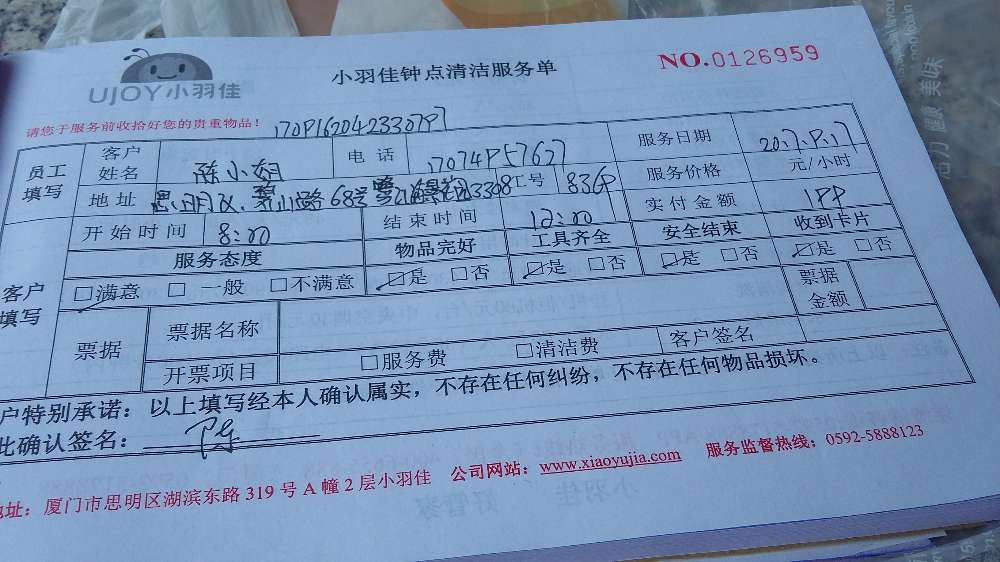 UJOY小羽佳
小羽佳钟点清洁服务单
NO.0126959
请您于服务前收拾好您的贵重物品!
员工填写
客户姓名 陈小娟 电话 服务日期
地址 工号 服务价格 元/小时
开始时间 8:00 结束时间 12:00 实付金额
客户填写
服务态度 物品完好 工具齐全 安全结束 收到卡片
□满意 □一般 □不满意 □是 □否 □是 □否 □是 □否 □是 □否
票据 票据名称 票据金额
开票项目 □服务费 □清洁费 客户签名
户特别承诺:以上填写经本人确认属实,不存在任何纠纷,不存在任何物品损坏。
此确认签名: 陈
地址:厦门市思明区湖滨东路319号A幢2层小羽佳 公司网站:www.xiaoyujia.com 服务监督热线:0592-5888123